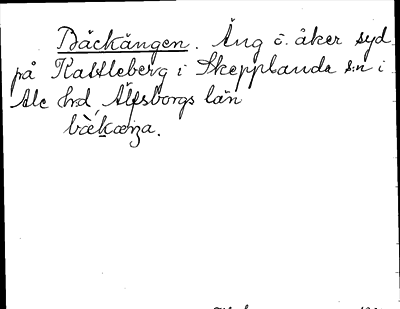 Bäckängen. Äng o. åker syd
på Kattleberg i Skepplanda s:n i
Ale hrd Älfsborgs län